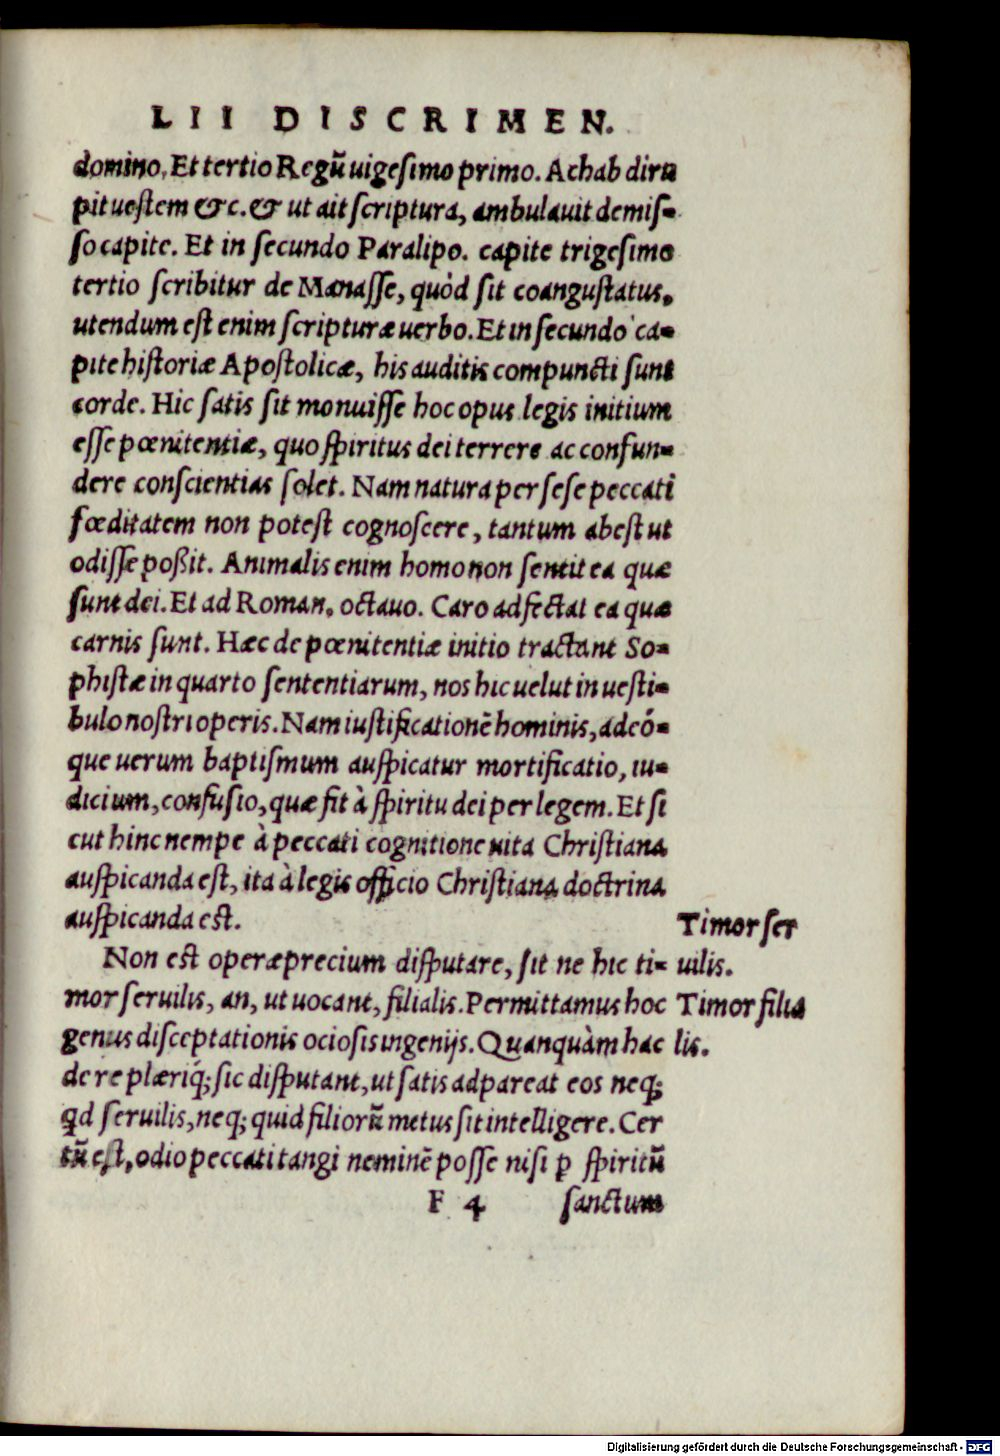 LII DISCRIMEN.
domino. Et tertio Regũ uigesimo primo. Achab diru
pit uestem &c. & ut ait scriptura, ambulauit demis-
so capite. Et in secundo Paralipo. capite trigesimo
tertio scribitur de Manasse, quòd sit coangustatus,
utendum est enim scripturæ uerbo. Et in secundo ca-
pite historiæ Apostolicæ, his auditis compuncti sunt
corde. Hic satis sit monuisse hoc opus legis initium
esse pœnitentiæ, quo spiritus dei terrere ac confun-
dere conscientias solet. Nam natura per sese peccati
fœditatem non potest cognoscere, tantum abest ut
odisse poßit. Animalis enim homo non sentit ea quæ
sunt dei. Et ad Roman. octauo. Caro adfectat ea quæ
carnis sunt. Hæc de pœnitentiæ initio tractant So-
phistæ in quarto sententiarum, nos hic uelut in uesti-
bulo nostri operis. Nam iustificationẽ hominis, adeó-
que uerum baptismum auspicatur mortificatio, iu-
dicium, confusio, quæ fit à spiritu dei per legem. Et si
cut hinc nempe à peccati cognitione uita Christiana
auspicanda est, ita à legis officio Christiana doctrina
auspicanda est.
Timor ser
Non est operæprecium disputare, sit ne hic ti- uilis.
mor seruilis, an, ut uocant, filialis. Permittamus hoc Timor filia
genus disceptationis ociosis ingenijs. Quanquàm hac lis.
de re plæriq́; sic disputant, ut satis adpareat eos neq;
qd seruilis, neq; quid filiorũ metus sit intelligere. Cer
tũ est, odio peccati tangi neminẽ posse nisi ꝑ spiritũ
F 4 sanctum
Digitalisierung gefördert durch die Deutsche Forschungsgemeinschaft - DFG